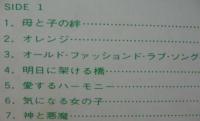 SIDE 1
1. 母と子の絆
2. オレンジ
3. オールド・ファッションド・ラブ・ソング
4. 明日に架ける橋
5. 愛するハーモニー
6. 気になる女の子
7. 神と悪魔